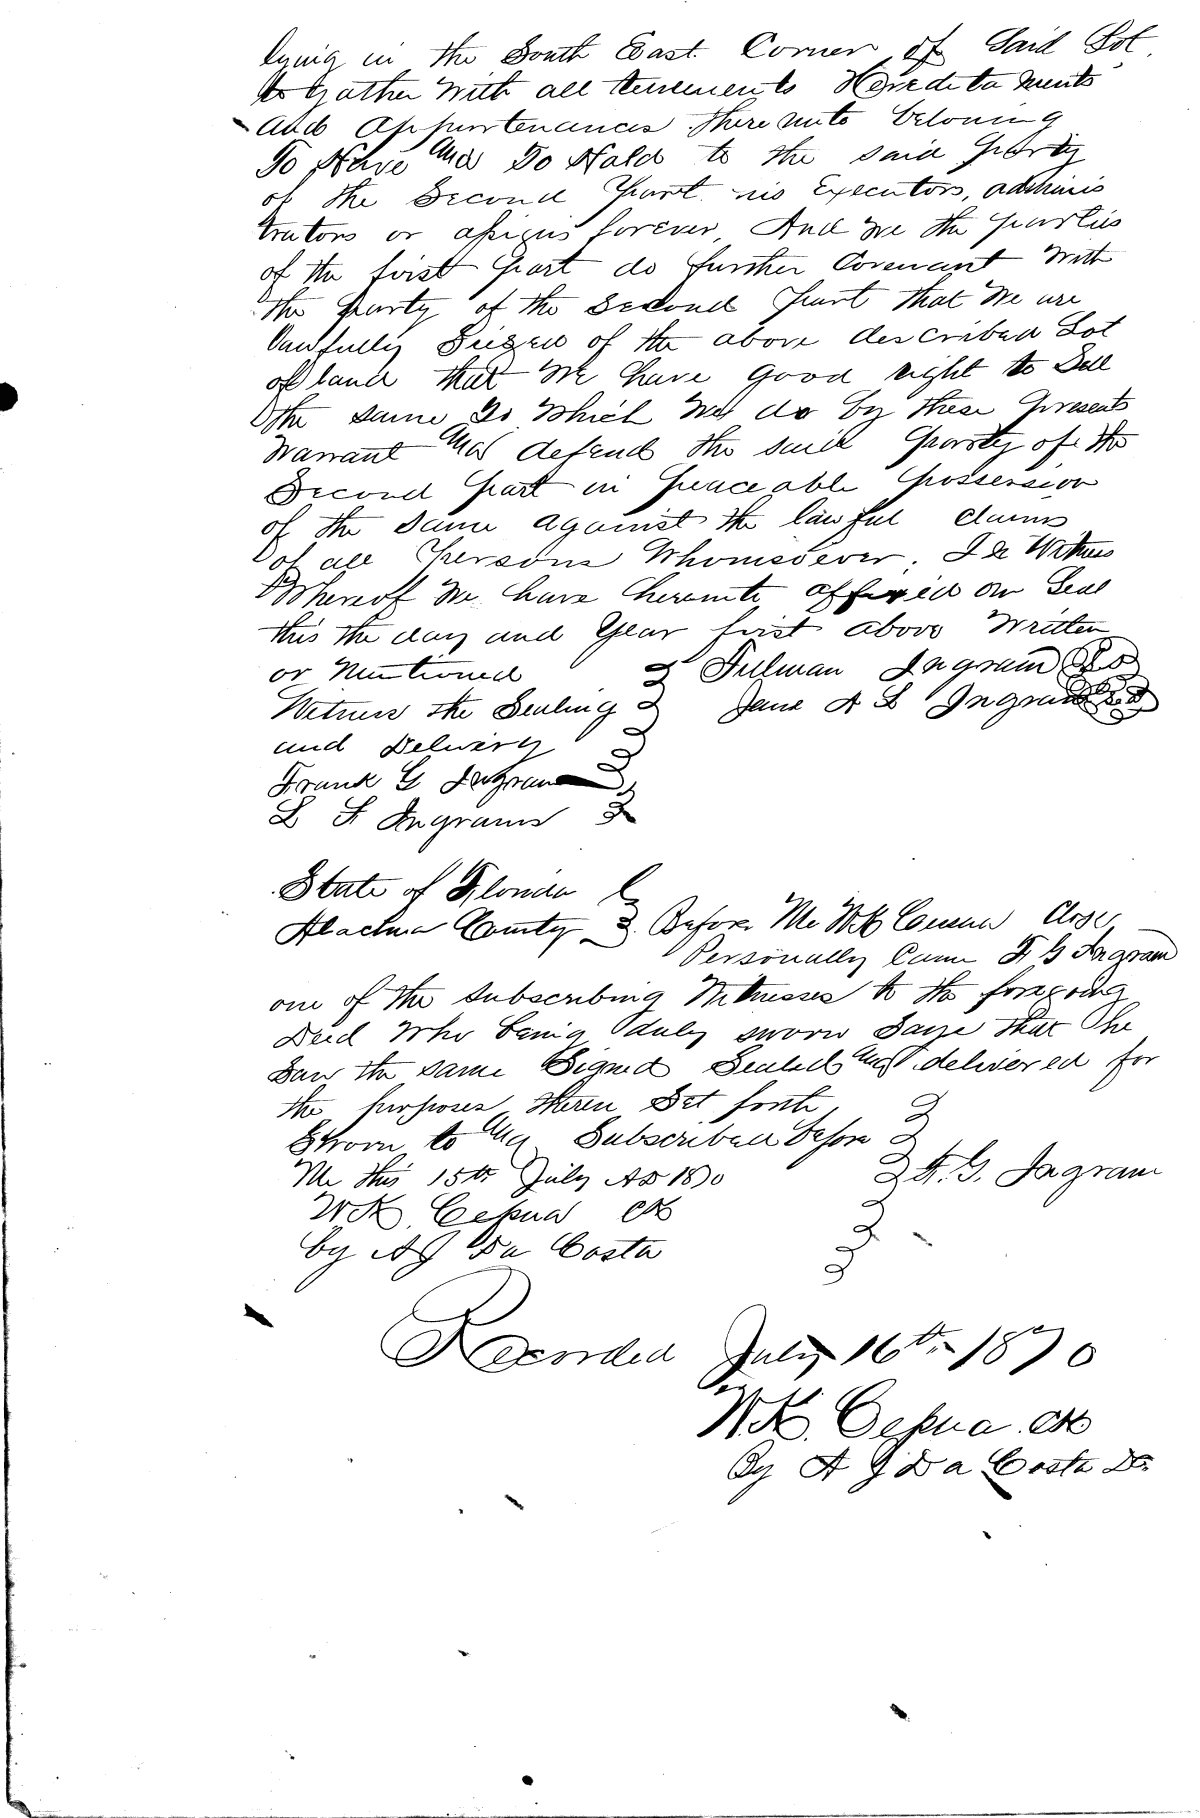 lying in the South East Corner of Said Lot
to Gather With all tenements Heredita ments
and Appurtenances thereunto beloning
To Have and To Hold to the said Party
of the Second Part his Executors, adminis
trators or assigns forever, And we the parties
of the first Part do further Covenant With
the party of the Second Part that We are
Lawfully Siezed of the above described Lot
of land that We have Good right to Sell
the same To Which We do by these Presents
Warrant and defend the said Party of the
Second Part in Peaceable Possession
of the Same against the lawful claims
of all Persons Whomsoever. In Witness
Whereof We have hereunto affixed our Seal
this the day and Year first above Written
or Mentioned Tillman Ingram
Witness the Sealing Jane A L Ingram
and Delivery
Frank G Ingram
L F Ingram
State of Florida
Alachua County Before Me WK Cessna Clerk
Personally Came F G Ingram
one of the subscribing Witnesses to the foregoing
Deed Who being duly sworn Says that he
Saw the same Signed Sealed and delivered for
the purposes therein Set forth
Sworn to and Subscribed before
Me this 15th July AD 1870 F. G. Ingram
W K Cessna Clk
by A J Da Costa
Recorded July 16th 1870
W.K. Cessna Clk
By A J Da Costa DC.